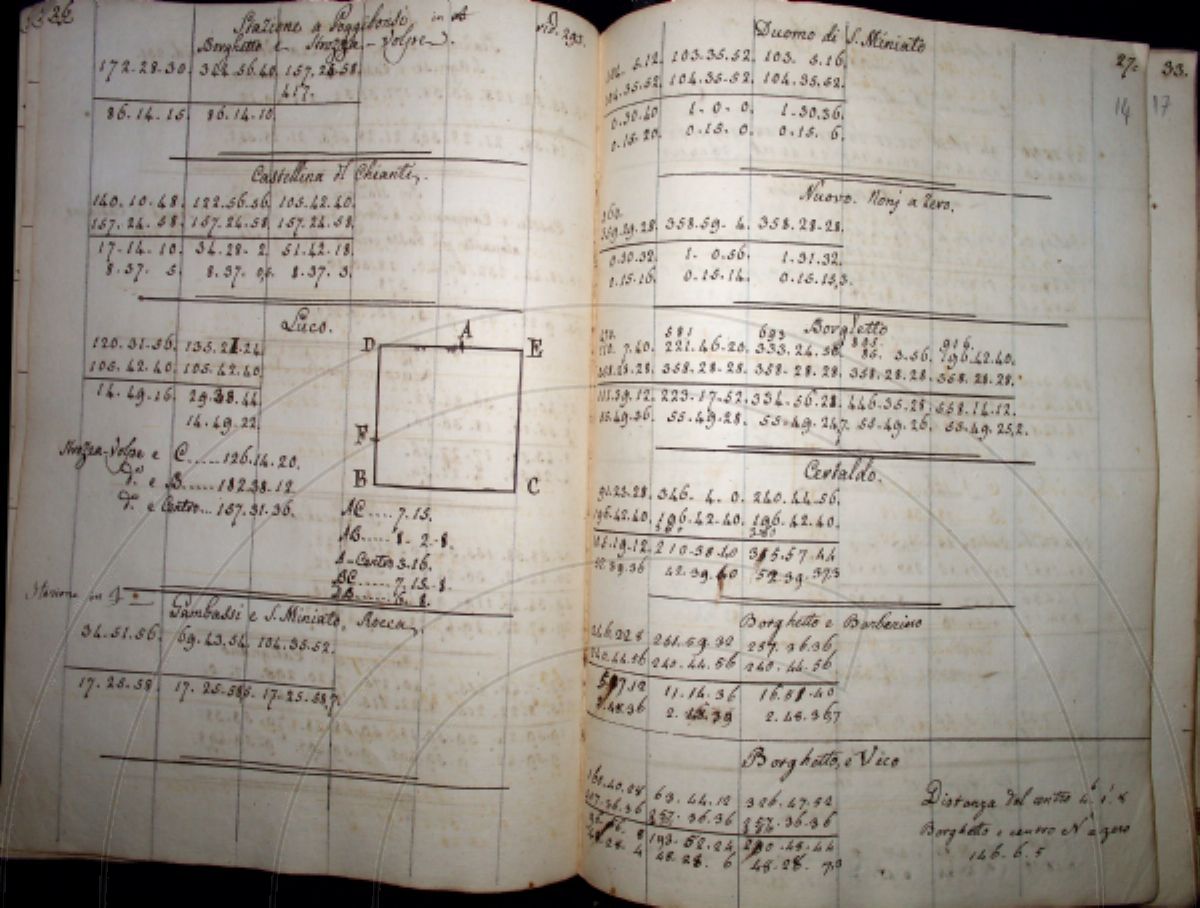 26
Stazione a Poggibonsi, in A
rid. 293.
Borghetto e Strozza-Volpe.
172.28.30. 344.56.40. 157.24.58.
417.
86.14.15. 86.14.10.
Castellina del Chianti.
140.10.48. 122.56.56. 105.42.40.
157.24.58. 157.24.58. 157.24.58.
17.14.10. 34.28. 2. 51.42.18.
8.37. 5. 8.37. 0,5. 8.37. 3.
Luco.
120.31.56. 135.21.24.
105.42.40. 105.42.40.
14.49.16. 29.38.44.
14.49.22.
D A E
F
B C
Strozza-Volpe e C......126.14.20.
d.o e B.....182.38.12
d.o e Centro...157.31.36.
AC.....7.15.
AB.....8.2.8.
A-Centro 3.16.
BC.....7.15.8.
Stazione in
Gambassi e S. Miniato, Rocca.
34.51.56. 69.43.54. 104.35.52.
17.25.58. 17.25.58,5. 17.25.58,7.
27. 33.
14 17
Duomo di S. Miniato
5.12. 103.35.52. 103. 5.16.
104.35.52. 104.35.52. 104.35.52.
0.30.40 1. 0. 0. 1.30.36.
0.15.20. 0.15. 0. 0.15. 6.
Nuovo. Nonj a Zero.
360.
359.29.28. 358.59. 4. 358.28.28.
0.30.32. 1. 0.56. 1.31.32.
0.15.16. 0.15.14. 0.15.15,3.
Borghetto
581 693 805. 916.
110. 7.40. 221.46.20. 333.24.56. 85. 3.56. 196.42.40.
358.28.28. 358.28.28. 358.28.28. 358.28.28. 358.28.28.
111.39.12. 223.17.52. 334.56.28. 446.35.28. 558.14.12.
55.49.36. 55.49.28. 55.49.24,7. 55.49.26. 55.49.25,2.
Certaldo.
91.23.28. 346. 4. 0. 240.44.56.
196.42.40. 196.42.40. 196.42.40.
210.38.40 315.57.44
52.39.36 52.39,37,3
Borghetto e Barberino
246.22.8 251.59.32 257.36.36.
240.44.56 240.44.56 240.44.56
11.14.36 16.51.40
2.48.36 2.48.39 2.48.36,7
Borghetto, e Vico
160.40.28 63.44.12 326.47.52
257.36.36 257.36.36 257.36.36
193.52.24 290.48.44
48.28.4 48.28. 6 48.28. 7,3
Distanza dal centro
Borghetto e centro N a zero
146.6.5